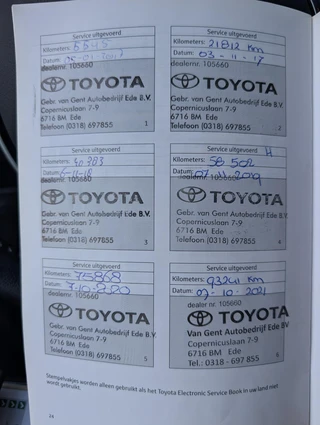 Service uitgevoerd
Kilometers: 5545
Datum:
dealernr. 105660
TOYOTA
Gebr. van Gent Autobedrijf Ede B.V.
Copernicuslaan 7-9
6716 BM Ede
Telefoon (0318) 697855
1
Service uitgevoerd
Kilometers: 21812 km
Datum: 03-11-17
dealernr. 105660
TOYOTA
Gebr. van Gent Autobedrijf Ede B.V.
Copernicuslaan 7-9
6716 BM Ede
Telefoon (0318) 697855
2
Service uitgevoerd
Kilometers: 40383
Datum: -11-18
dealernr. 105660
TOYOTA
Gebr. van Gent Autobedrijf Ede B.V.
Copernicuslaan 7-9
6716 BM Ede
Telefoon (0318) 697855
3
Service uitgevoerd
Kilometers: 58 502
Datum: 07-11-2019
dealernr. 105660
TOYOTA
Gebr. van Gent Autobedrijf Ede B.V.
Copernicuslaan 7-9
6716 BM Ede
Telefoon (0318) 697855
4
Service uitgevoerd
Kilometers: 75868
Datum:
dealer nr. 105660
TOYOTA
Gebr. van Gent Autobedrijf Ede B.V.
Copernicuslaan 7-9
6716 BM Ede
Telefoon (0318) 697855
5
Service uitgevoerd
Kilometers: 93241 km
Datum: 07-10-2021
dealer nr. 105660
TOYOTA
Van Gent Autobedrijf Ede BV
Copernicuslaan 7-9
6716 BM Ede
Tel.: 0318 - 697 855
6
Stempelvakjes worden alleen gebruikt als het Toyota Electronic Service Book in uw land niet
wordt gebruikt.
24